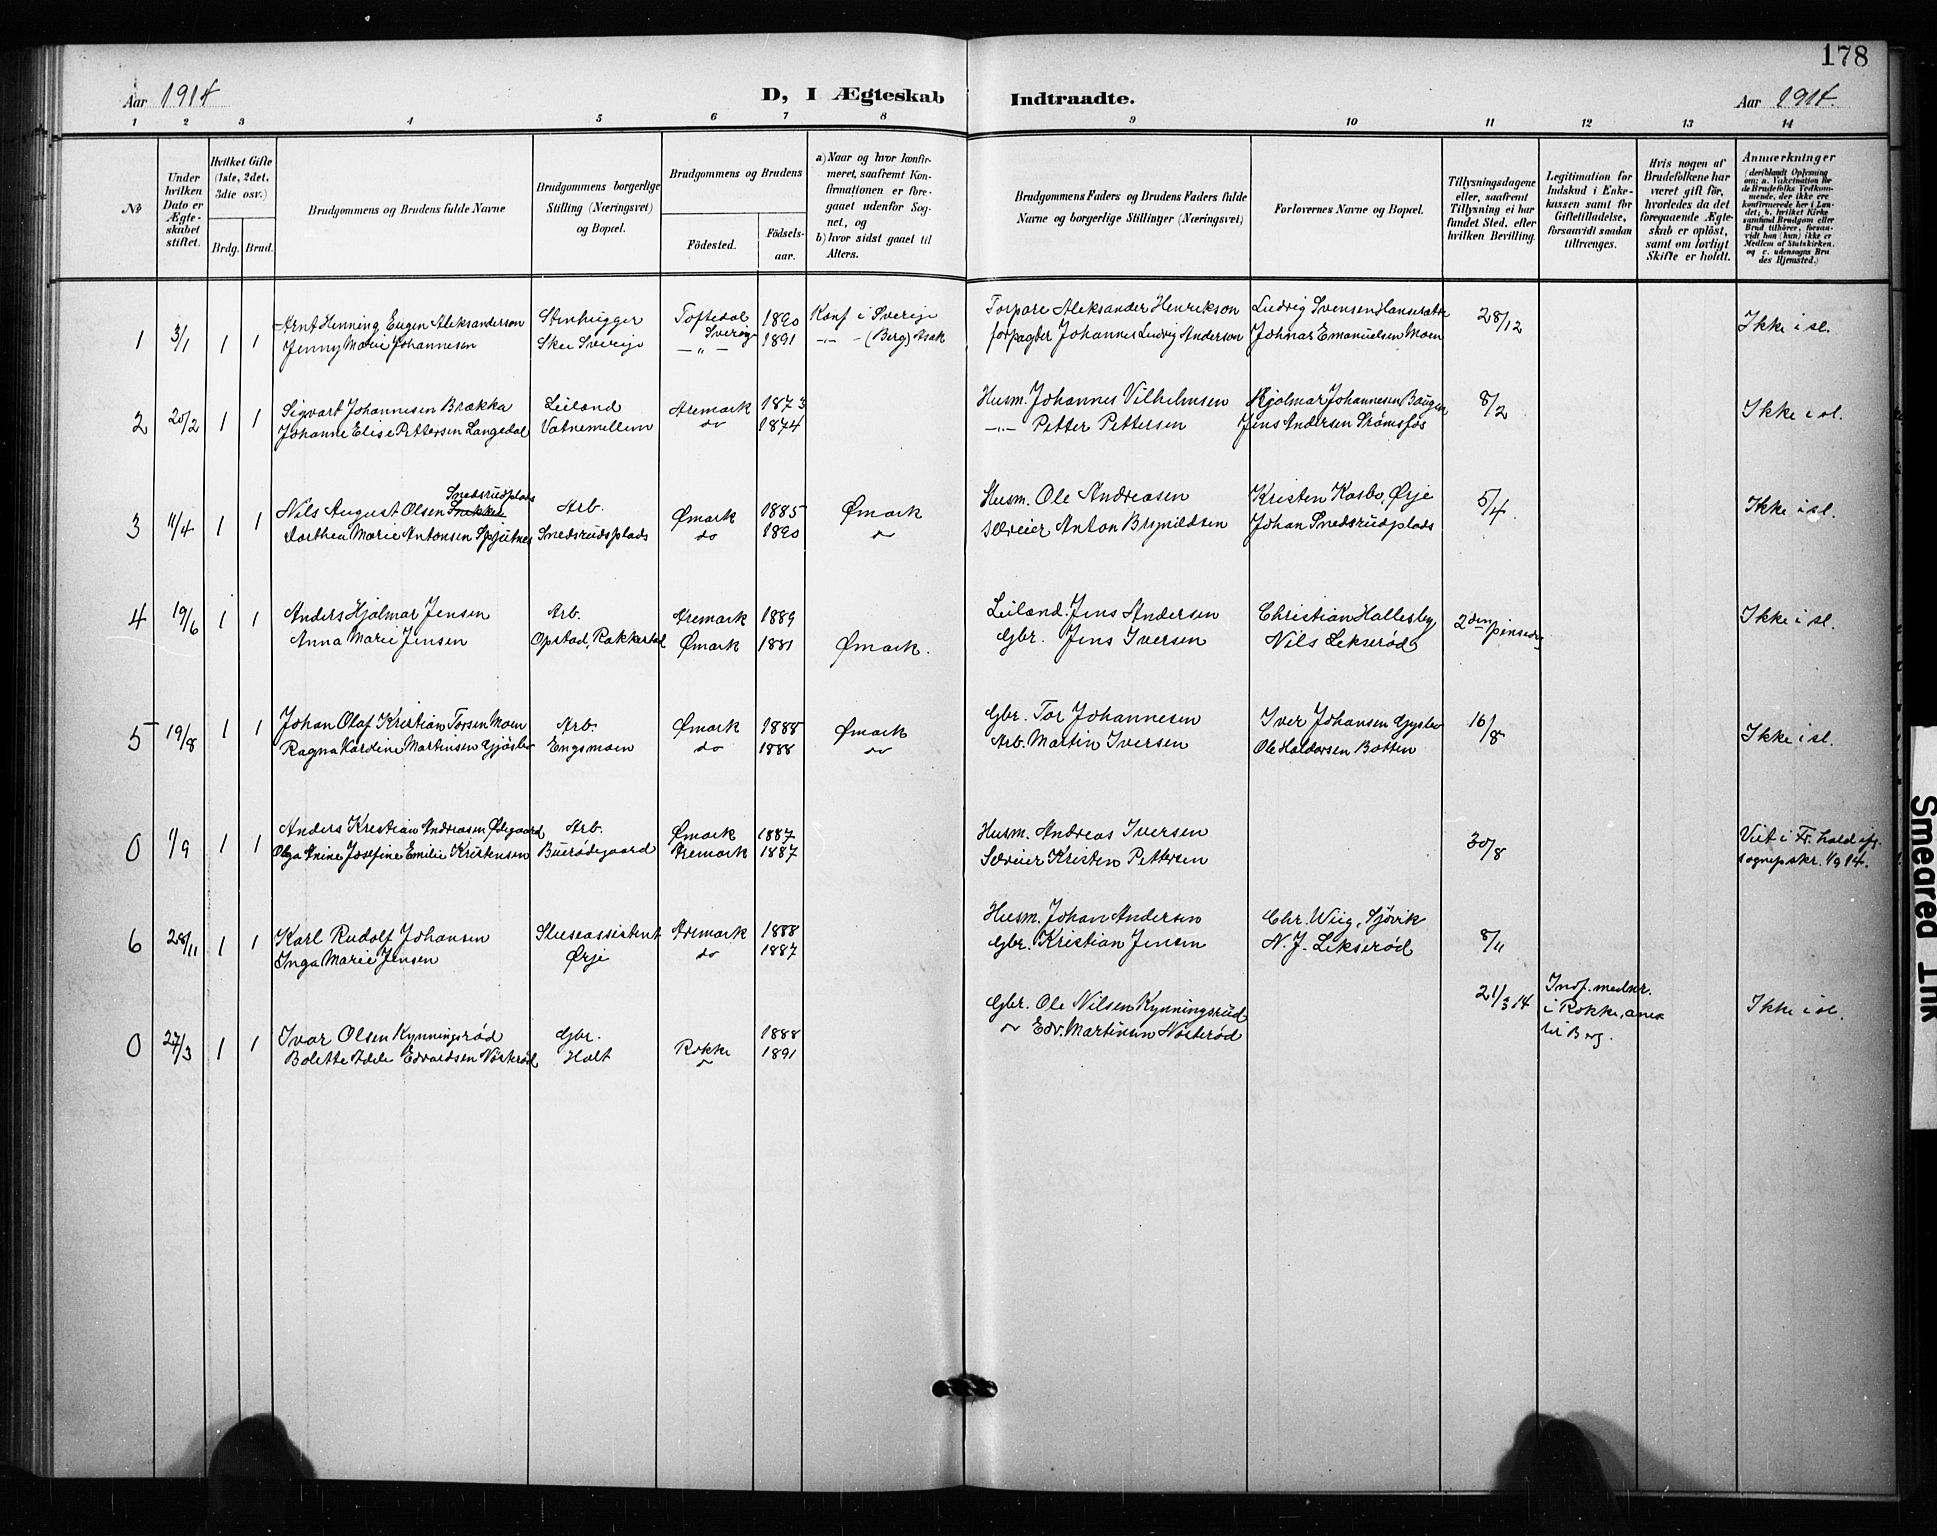 178
Aar 1914
D, I Ægteskab Indtraadte.
Aar 1914.
1 2 3 4 5 6 7 8 9 10 11 12 13 14
№
Under hvilken Dato er Ægteskabet stiftet.
Hvilket Gifte (1ste, 2det, 3die osv.)
Brdg. Brud.
Brudgommens og Brudens fulde Navne
Brudgommens borgerlige Stilling (Næringsvei) og Bopæl.
Brudgommens og Brudens
Fødested.
Fødselsaar.
a) Naar og hvor konfirmeret, saafremt Konfirmationen er foregaaet udenfor Sognet, og
b) hvor sidst gaaet til Alters.
Brudgommens Faders og Brudens Faders fulde Navne og borgerlige Stillinger (Næringsvei)
Forlovernes Navne og Bopæl.
Tillysningsdagene eller, saafremt Tillysning ei har fundet Sted, efter hvilken Bevilling.
Legitimation for Indskud i Enkekassen samt for Giftetilladelse, forsaavidt saadan tiltrænges.
Hvis nogen af Brudefolkene har været gift før, hvorledes da det foregaaende Ægteskab er opløst, samt om lovligt Skifte er holdt.
Anmærkninger (deriblandt Oplysning om: a. Vakcination for de Brudefolks Vedkommende, der ikke ere konfirmerede her i Landet; b. hvilket Kirkesamfund Brudgom eller Brud tilhører, forsaavidt han (hun) ikke er Medlem af Statskirken, og c. udensogns Brudes Hjemsted.)
1 3/1 1 1 Arnt Henning Eugen Aleksanderson Stenhugger Toftedal Sverig 1890 Konf i Sverije Torpare Aleksander Henrikson Ludvig Svensen 28/12 Ikke i sl.
Jenny Marie Johannesen Skee Sverije —„— 1891 —„— (Berg) Asak forpagter Johannes Ludvig Anderson Johnar Emanuelsen Moen
2 20/2 1 1 Sigvart Johannesen Brækka Leiland Aremark 1873 Husm. Johannes Vilhelmsen Hjalmar Johannesen Baugen 8/2 Ikke i sl.
Johanne Elise Pettersen Langedal Vatnemellem do 1874 —„— Petter Pettersen Jens Andersen Strømsfos
3 11/4 1 1 Nils August Olsen Snedsrudplads Arb. Ømark 1885 Ømark Husm. Ole Andreasen Kristen Kasbo, Ørje 5/4 Ikke i sl.
Dorthea Marie Antonsen Spjutnes Snedsrudsplads do 1890 do Selveier Anton Brynildsen Johan Snedsrudplads
4 19/6 1 1 Anders Hjalmar Jensen Arb. Aremark 1889 Leiland. Jens Andersen Christian Hallesby 2den pinsed. Ikke i sl.
Anna Marie Jensen Opstad, Rakkestad Ømark 1881 Ømark. Gbr. Jens Iversen Nils Lekserød
5 19/8 1 1 Johan Olaf Kristian Torsen Moen Arb. Ømark 1888 Ømark Gbr. Tor Johannesen Iver Johansen Gjøsbo 16/8 Ikke i sl.
Ragna Kardine Martinsen Gjøsbo Engsmoen do 1888 do Arb. Martin Iversen Ole Haldorsen Botten
0 1/9 1 1 Anders Kristian Andreasen Ødegaard Arb. Ømark 1887 Husm. Andreas Iversen 30/8 Viet i Fr.hald
Olga Anine Josefine Emilie Kristensen Buerødegaard Aremark 1887 Selveier Kristen Pettersen sognepskr. 1914.
6 28/11 1 1 Karl Rudolf Johansen Sluseassistent Aremark 1888 Husm. Johan Andersen Chr. Wiig, Sjøvik 8/11
Inga Marie Jensen Ørje do 1887 Gbr. Kristian Jensen N. J. Lekserød
0 27/3 1 1 Ivar Olsen Kynningsrød Gbr. 1888 Gbr. Ole Nilsen Kynningsrud 21/3 14 Indf. i Rokke, til Berg. Ikke i sl.
Bolette Edvardsen Nøsterød Holt Rokke 1891 do Edv. Martinsen Nøsterød
Smeared Ink